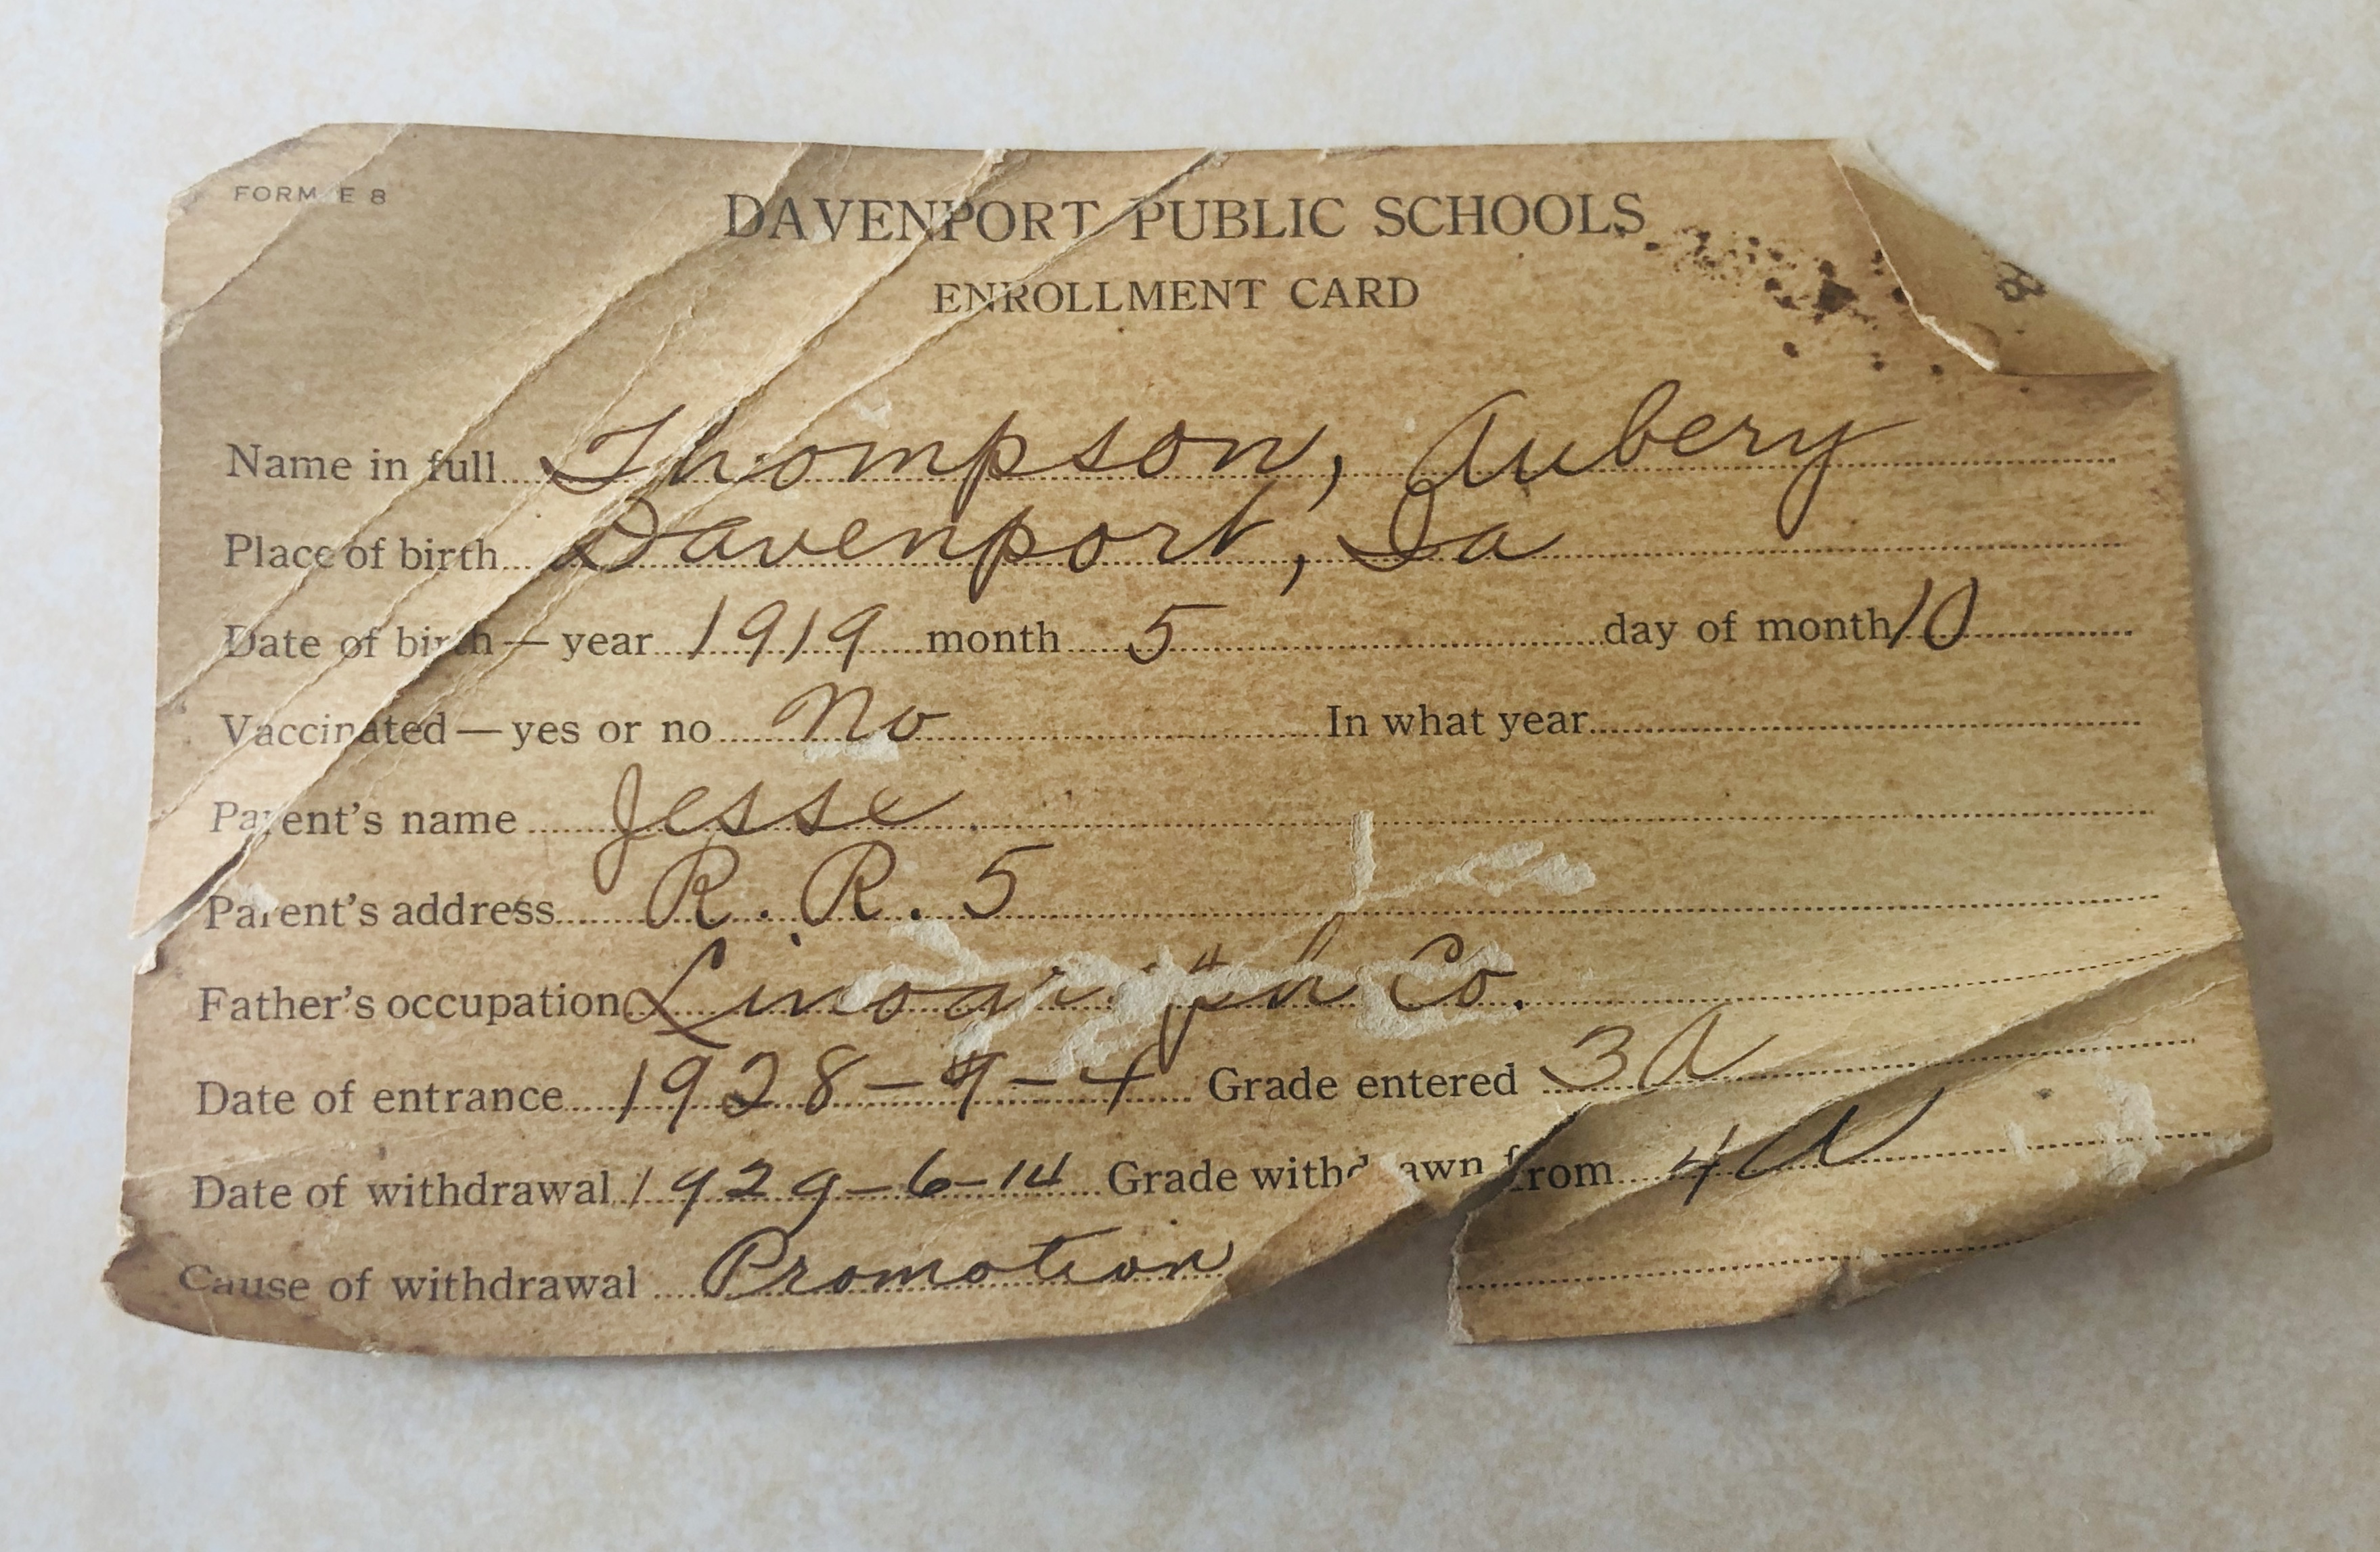 FORM E 8
DAVENPORT PUBLIC SCHOOLS
ENROLLMENT CARD
Name in full Thompson, Aubery
Place of birth Davenport, Ia
Date of birth — year 1919 month 5 day of month 10
Vaccinated — yes or no No In what year
Parent's name Jesse
Parent's address R. R. 5
Father's occupation Co.
Date of entrance 1928-9-4 Grade entered 3A
Date of withdrawal 1929-6-14 Grade withdrawn from 4A
Cause of withdrawal Promotion